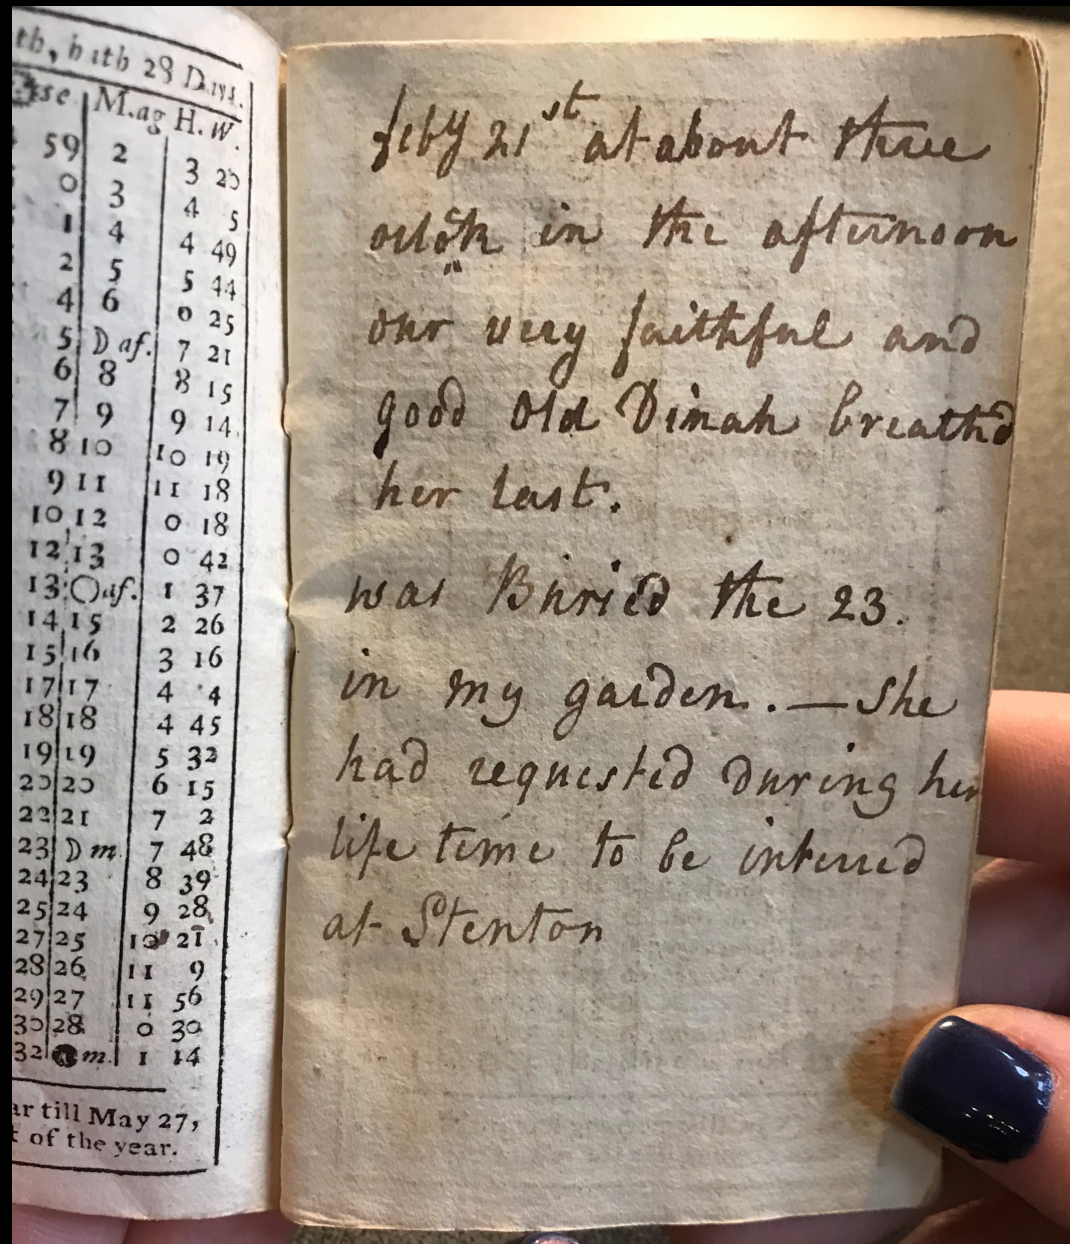 th, hath 28 Days.
ise M.ag H. W.
59 2 3 20
0 3 4 5
1 4 4 49
2 5 5 44
4 6 0 25
5 D af. 7 21
6 8 8 15
7 9 9 14
8 10 10 19
9 11 11 18
10 12 0 18
12 13 0 42
13 ○ af. 1 37
14 15 2 26
15 16 3 16
17 17 4 4
18 18 4 45
19 19 5 32
20 20 6 15
22 21 7 2
23 D m 7 48
24 23 8 39
25 24 9 28
27 25 10 21
28 26 11 9
29 27 11 56
30 28 0 30
32 ● m. 1 14
ar till May 27,
t of the year.
feby 21st at about three
oclock in the afternoon
our very faithful and
good Old Dinah breathd
her last.
was Buried the 23.
in my garden. — She
had requested during her
life time to be interred
at Stenton